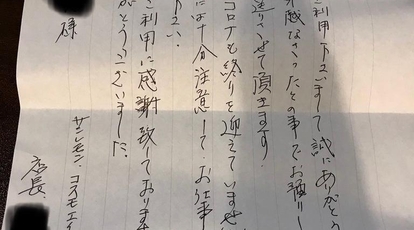 ご利用下さいまして誠にありがとう
お越しなさったとの事でお
送りさせて頂きます.
コロナも終りを迎えていませ
には十分注意して、お仕事
下さい.
ご利用に感謝致しております
がとうございました.
様
サンレモン. コスモエイ
店長